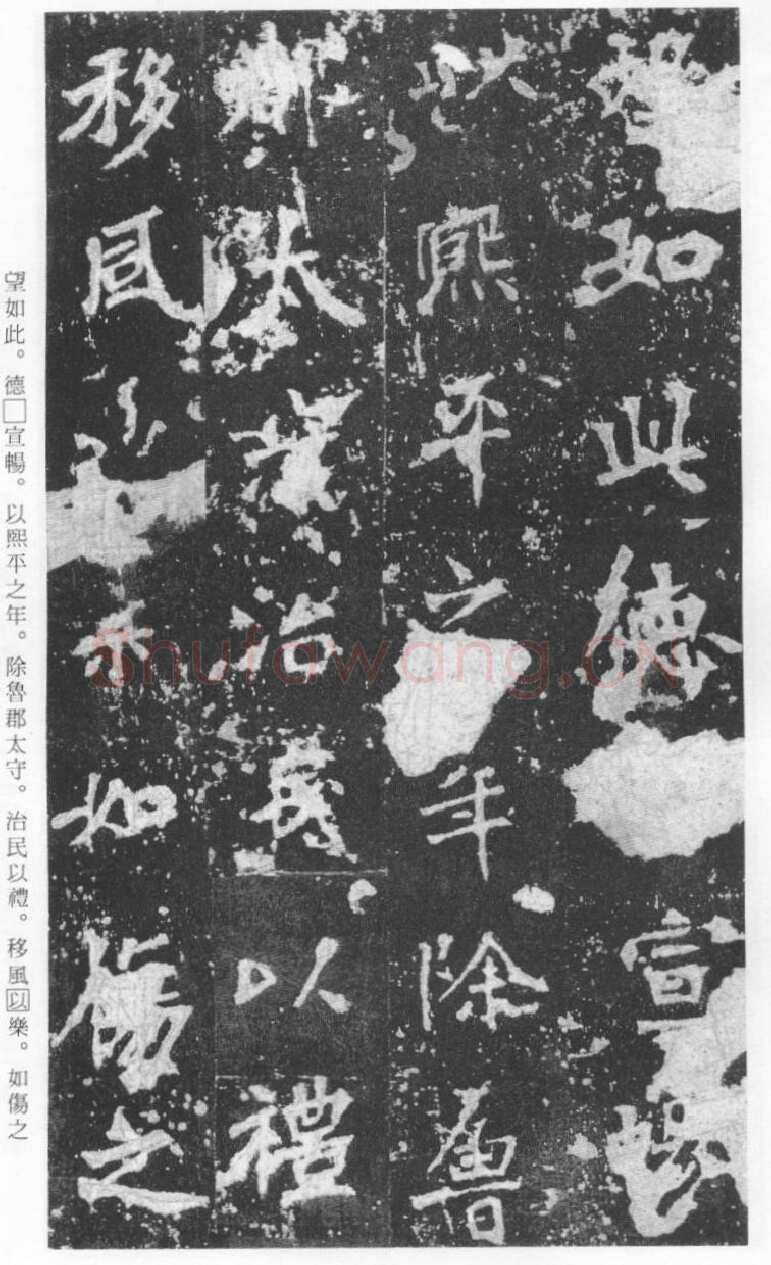 望如此德宣暢
以熙平之年除魯
郡太守治民以禮
移風樂如傷之
望如此。德□宣暢。以熙平之年。除魯郡太守。治民以禮。移風以樂。如傷之
Shufawang.CN